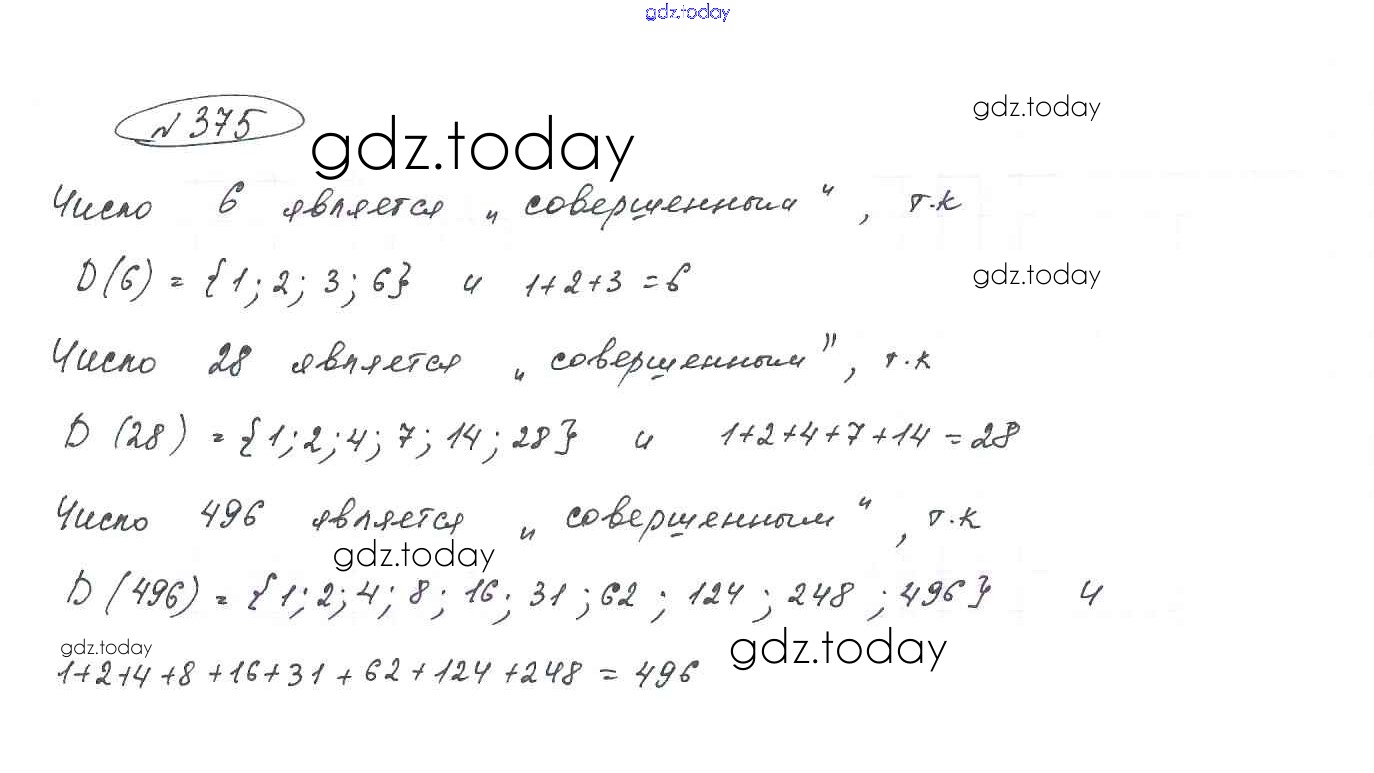 gdz.today
№ 375
gdz.today
gdz.today
Число 6 является „совершенным“, т.к
D(6) = {1; 2; 3; 6} и 1+2+3 = 6
gdz.today
Число 28 является „совершенным”, т.к
D (28) = {1; 2; 4; 7; 14; 28} и 1+2+4+7+14 = 28
Число 496 является „совершенным“, т.к
gdz.today
D (496) = {1; 2; 4; 8; 16; 31; 62; 124; 248; 496} и
gdz.today
gdz.today
1+2+4+8+16+31+62+124+248 = 496